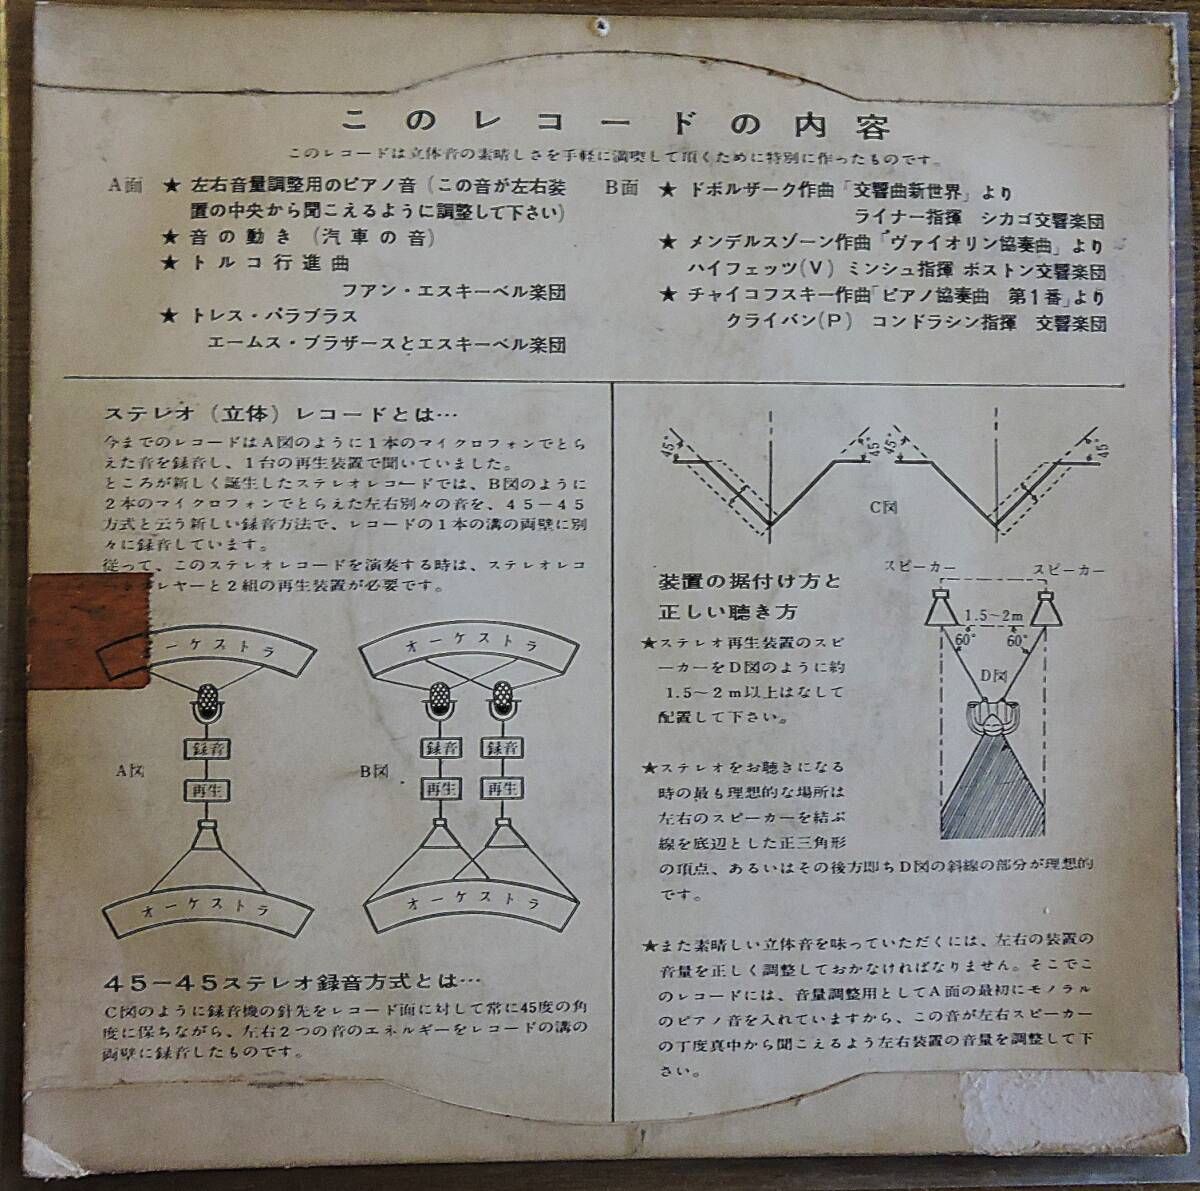 このレコードの内容
このレコードは立体音の素晴しさを手軽に満喫して頂くために特別に作ったものです。
A面 ★ 左右音量調整用のピアノ音 (この音が左右装
置の中央から聞こえるように調整して下さい)
★ 音の動き (汽車の音)
★ トルコ行進曲
フアン・エスキーベル楽団
★ トレス・パラブラス
エームス・ブラザースとエスキーベル楽団
B面 ★ ドボルザーク作曲「交響曲新世界」より
ライナー指揮 シカゴ交響楽団
★ メンデルスゾーン作曲「ヴァイオリン協奏曲」より
ハイフェッツ(V) ミンシュ指揮 ボストン交響楽団
★ チャイコフスキー作曲「ピアノ協奏曲 第1番」より
クライバン(P) コンドラシン指揮 交響楽団
ステレオ (立体) レコードとは…
今までのレコードはA図のように1本のマイクロフォンでとら
えた音を録音し、1台の再生装置で聞いていました。
ところが新しく誕生したステレオレコードでは、B図のように
2本のマイクロフォンでとらえた左右別々の音を、45-45
方式と云う新しい録音方法で、レコードの1本の溝の両壁に別
々に録音しています。
従って、このステレオレコードを演奏する時は、ステレオレコ
レヤーと2組の再生装置が必要です。
オーケストラ
録音
再生
A図
オーケストラ
オーケストラ
録音 録音
再生 再生
B図
オーケストラ
45-45ステレオ録音方式とは…
C図のように録音機の針先をレコード面に対して常に45度の角
度に保ちながら、左右2つの音のエネルギーをレコードの溝の
両壁に録音したものです。
45° 45° 45° 45°
C図
装置の据付け方と
正しい聴き方
★ステレオ再生装置のスピ
ーカーをD図のように約
1.5~2m以上はなして
配置して下さい。
スピーカー スピーカー
1.5~2m
60° 60°
D図
★ステレオをお聴きになる
時の最も理想的な場所は
左右のスピーカーを結ぶ
線を底辺とした正三角形
の頂点、あるいはその後方即ちD図の斜線の部分が理想的
です。
★また素晴しい立体音を味っていただくには、左右の装置の
音量を正しく調整しておかなければなりません。そこでこ
のレコードには、音量調整用としてA面の最初にモノラル
のピアノ音を入れていますから、この音が左右スピーカー
の丁度真中から聞こえるよう左右装置の音量を調整して下
さい。